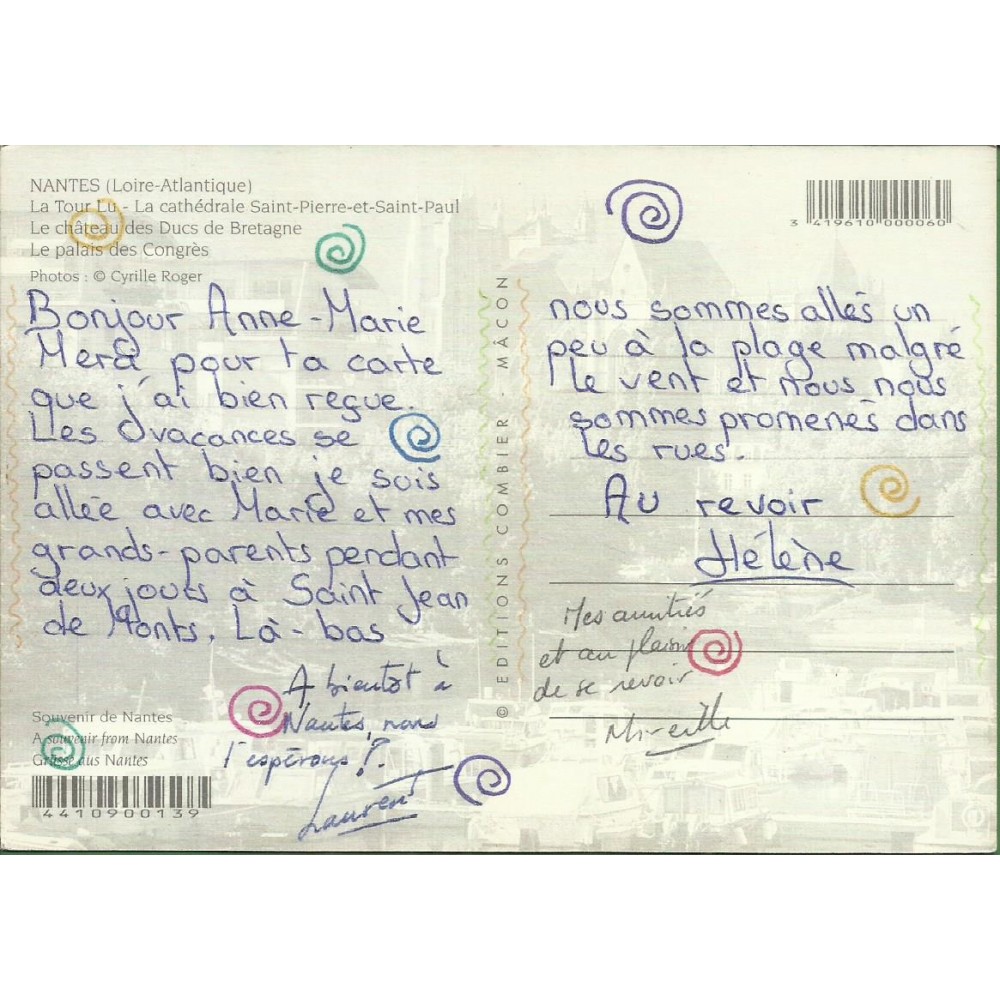 NANTES (Loire-Atlantique)
La Tour Lu - La cathédrale Saint-Pierre-et-Saint-Paul
Le château des Ducs de Bretagne
Le palais des Congrès
Photos : © Cyrille Roger
3 419610 000060
Bonjour Anne-Marie
Merci pour ta carte
que j'ai bien reçue.
Les vacances se
passent bien je suis
allée avec Marie et mes
grands-parents pendant
deux jours à Saint Jean
de Monts. Là-bas
nous sommes allés un
peu à la plage malgré
le vent et nous nous
sommes promenés dans
les rues.
Au revoir
Hélène
A bientôt à
Nantes, nous
l'espérons !
Laurent
Mes amitiés
et au plaisir
de se revoir
Mireille
© EDITIONS COMBIER - MÂCON
Souvenir de Nantes
A souvenir from Nantes
Grüsse aus Nantes
4410900139